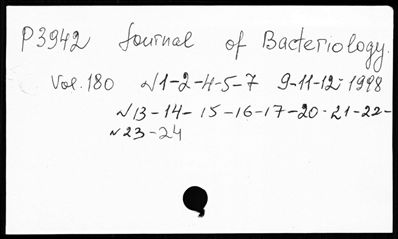 P3942 Journal of Bacteriology.
Vol. 180 N1-2-4-5-7 9-11-12-1998
N13-14-15-16-17-20-21-22-
N23-24